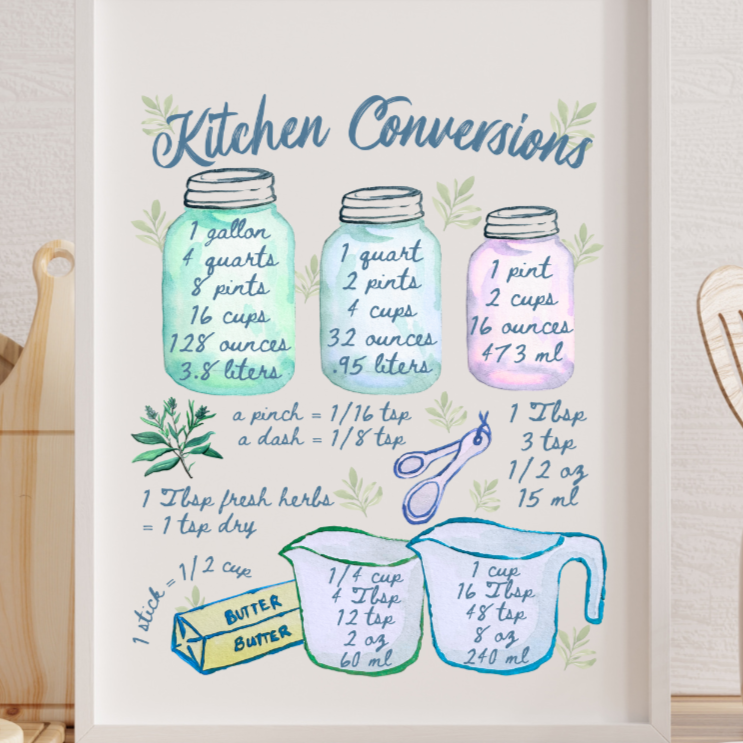 Kitchen Conversions
1 gallon
4 quarts
8 pints
16 cups
128 ounces
3.8 liters
1 quart
2 pints
4 cups
32 ounces
.95 liters
1 pint
2 cups
16 ounces
473 ml
a pinch = 1/16 tsp
a dash = 1/8 tsp
1 Tbsp
3 tsp
1/2 oz
15 ml
1 Tbsp fresh herbs
= 1 tsp dry
1 stick = 1/2 cup
BUTTER
BUTTER
1/4 cup
4 Tbsp
12 tsp
2 oz
60 ml
1 cup
16 Tbsp
48 tsp
8 oz
240 ml